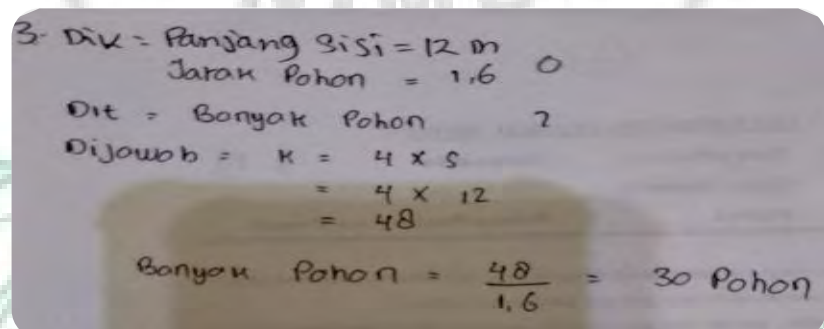 3. Dik = Panjang Sisi = 12 m
Jarak Pohon = 1,6 0
Dit = Banyak Pohon ?
Dijawab = K = 4 x s
= 4 x 12
= 48
Banyak Pohon = 48/1,6 = 30 Pohon